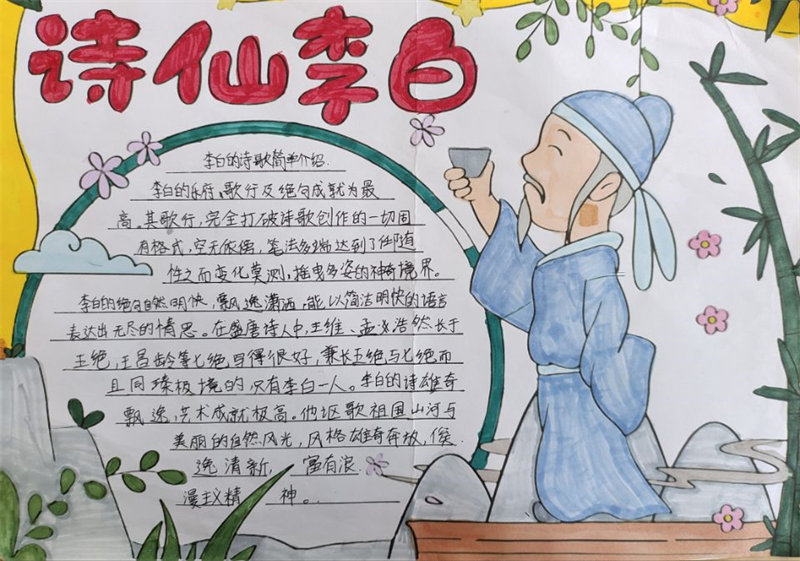 诗仙李白
李白的诗歌简单介绍.
李白的乐府、歌行及绝句成就为最
高。其歌行,完全打破诗歌创作的一切固
有格式,空无依傍,笔法多端,达到了任随
性之而变化莫测,摇曳多姿的神奇境界。
李白的绝句自然明快,飘逸潇洒,能以简洁明快的语言
表达出无尽的情思。在盛唐诗人中,王维、孟浩然长于
五绝,王昌龄等七绝写得很好,兼长五绝与七绝而
且同臻极境的,只有李白一人。李白的诗雄奇
飘逸,艺术成就极高。他讴歌祖国山河与
美丽的自然风光,风格雄奇奔放,俊
逸清新,富有浪
漫主义精神。